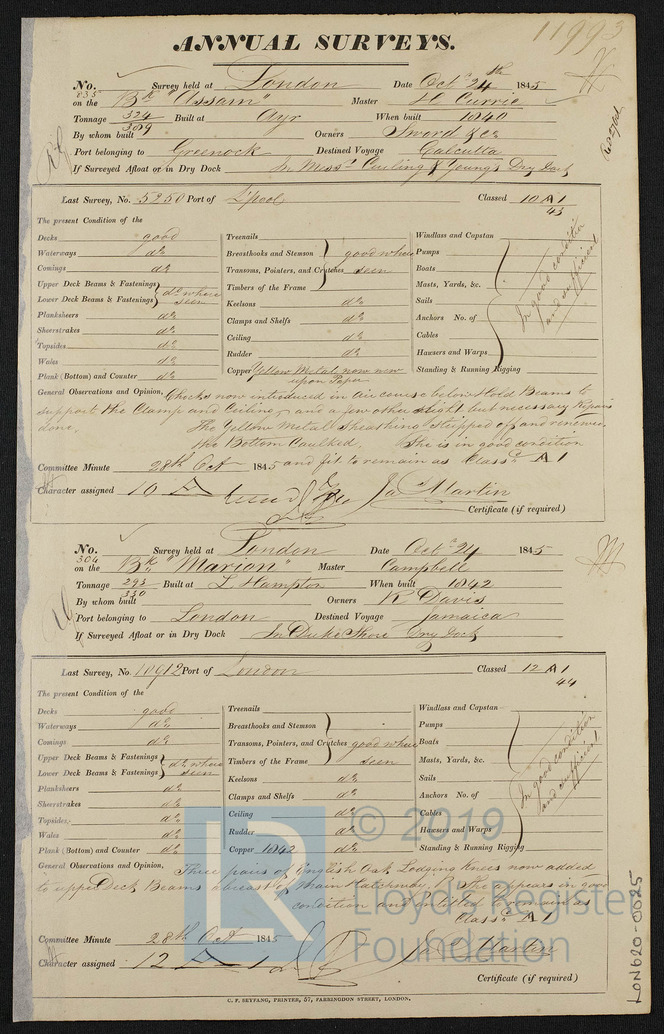 11993
ANNUAL SURVEYS.
No. 835 Survey held at London Date Octr 24th 1845
on the Bk "Assam" Master H Currie
Tonnage 324 309 Built at Ayr When built 1840
By whom built Owners Sword & Co
Port belonging to Greenock Destined Voyage Calcutta
If Surveyed Afloat or in Dry Dock In Messrs Curling & Youngs Dry Dock
Last Survey, No. 5250 Port of L'pool Classed 10 A1 43
The present Condition of the
Decks good Treenails Windlass and Capstan
Waterways do Breasthooks and Stemson good where Pumps
Comings do Transoms, Pointers, and Crutches seen Boats
Upper Deck Beams & Fastenings do where Timbers of the Frame Masts, Yards, &c. In good condition
Lower Deck Beams & Fastenings seen Keelsons do Sails and sufficient
Plansheers do Clamps and Shelfs do Anchors No. of
Sheerstrakes do Ceiling do Cables
Topsides do Rudder do Hawsers and Warps
Wales do Copper Yellow Metal now new Standing & Running Rigging
Plank (Bottom) and Counter do upon Paper
General Observations and Opinion, Chocks now introduced in air course below Hold Beams to
support the Clamp and Ceiling, and a few other slight but necessary Repairs
done, The Yellow Metal Sheathing stripped off and renewed
the Bottom Caulked. She is in good condition
Committee Minute 28th Oct 1845 and fit to remain as Classd A1
Character assigned 10 A Jas Martin
Certificate (if required)
No. 304 Survey held at London Date Octr 24 1845
on the Bk "Marion" Master Campbell
Tonnage 293 330 Built at L Hampton When built 1842
By whom built Owners R Davis
Port belonging to London Destined Voyage Jamaica
If Surveyed Afloat or in Dry Dock In Duke Shore Dry Dock
Last Survey, No. 10912 Port of London Classed 12 A1 44
The present Condition of the
Decks good Treenails Windlass and Capstan
Waterways do Breasthooks and Stemson Pumps
Comings do Transoms, Pointers, and Crutches good where Boats
Upper Deck Beams & Fastenings do where Timbers of the Frame seen Masts, Yards, &c. In good condition
Lower Deck Beams & Fastenings seen Keelsons do Sails and sufficient
Plansheers do Clamps and Shelfs do Anchors No. of
Sheerstrakes do Ceiling do Cables
Topsides do Rudder do Hawsers and Warps
Wales do Copper 1842 Standing & Running Rigging
Plank (Bottom) and Counter do
General Observations and Opinion, Three pairs of English Oak Lodging Knees now added
to upper Deck Beams abreast of Main Hatchway. She appears in good
condition and entitled to remain as
Classd A1
Committee Minute 28th Oct 1845
Character assigned 12 A 1 Jas Martin
Certificate (if required)
C. F. SEYFANG, PRINTER, 57, FARRINGDON STREET, LONDON.
LON620-0025
LR © 2019
Lloyd's Register
Foundation